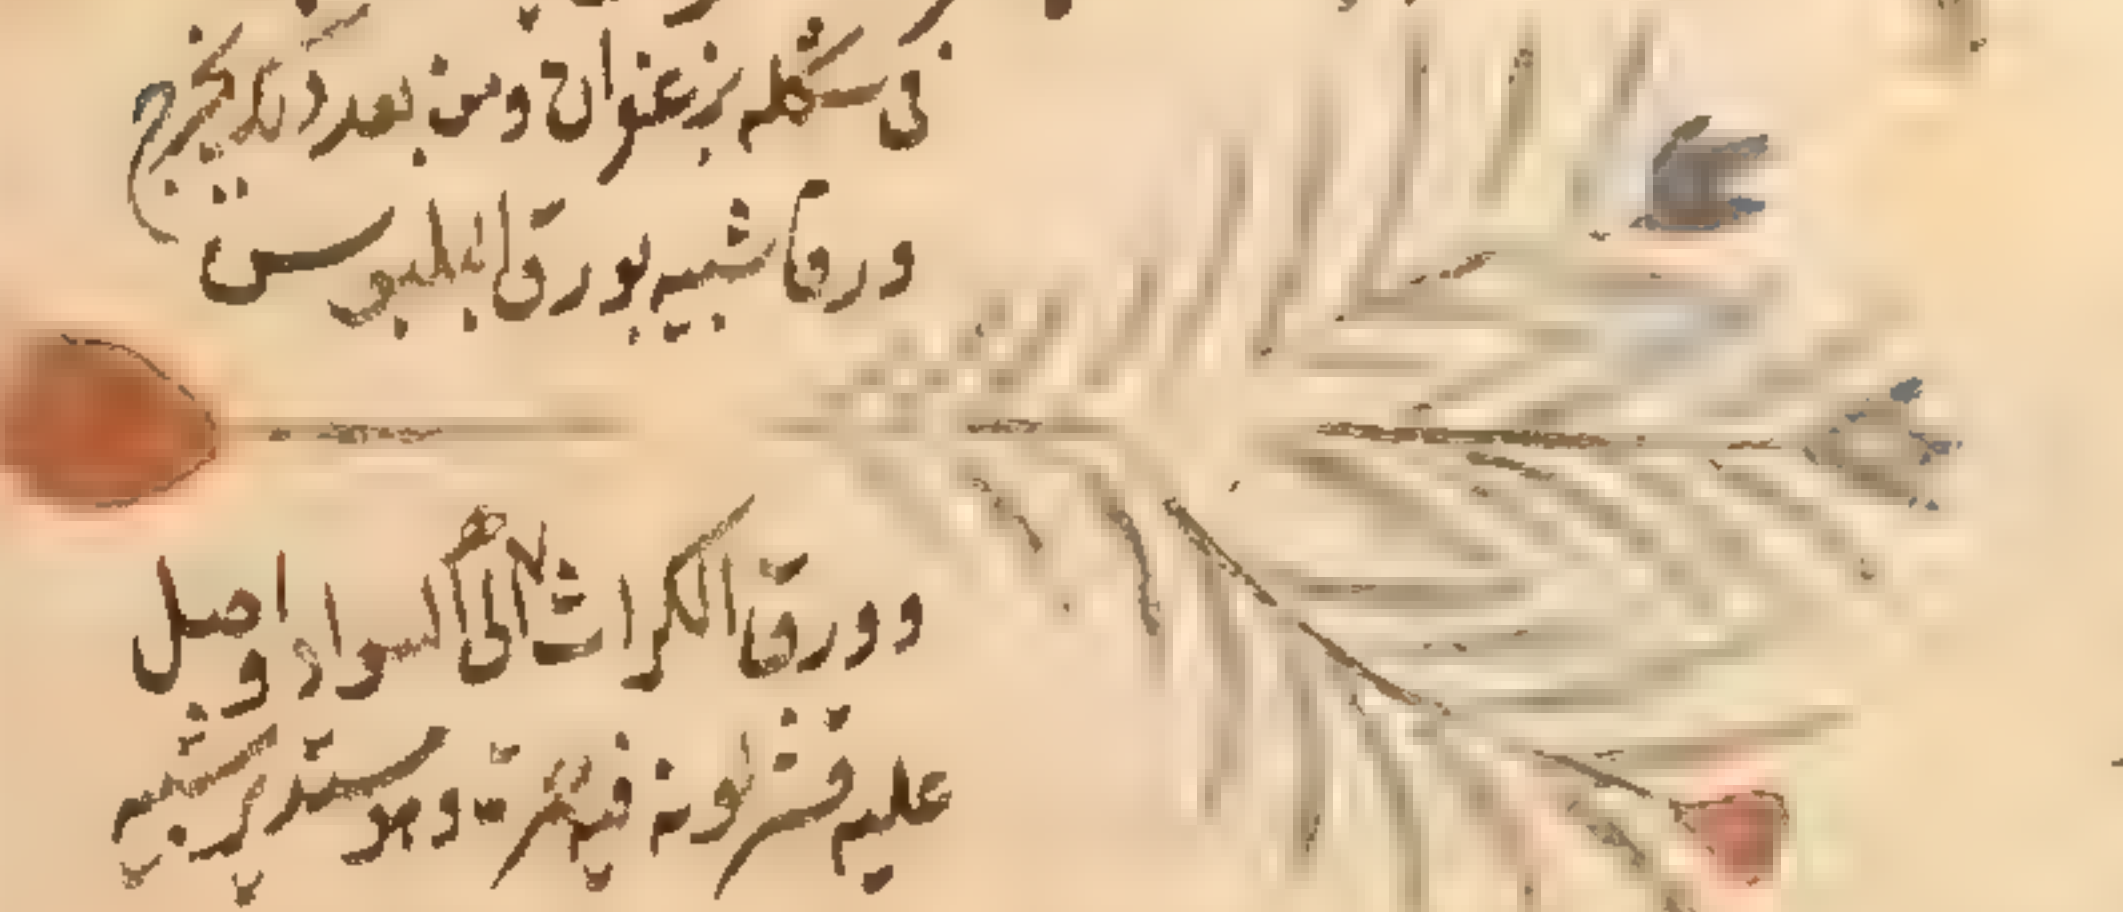 في شكله بزعفران ومن بعد ذلك يخرج
ورقا شبيه بورق البلبوس
وورق الكراث الى السواد واصل
عليه قشر لونه فيه وهو مستدير شبيه